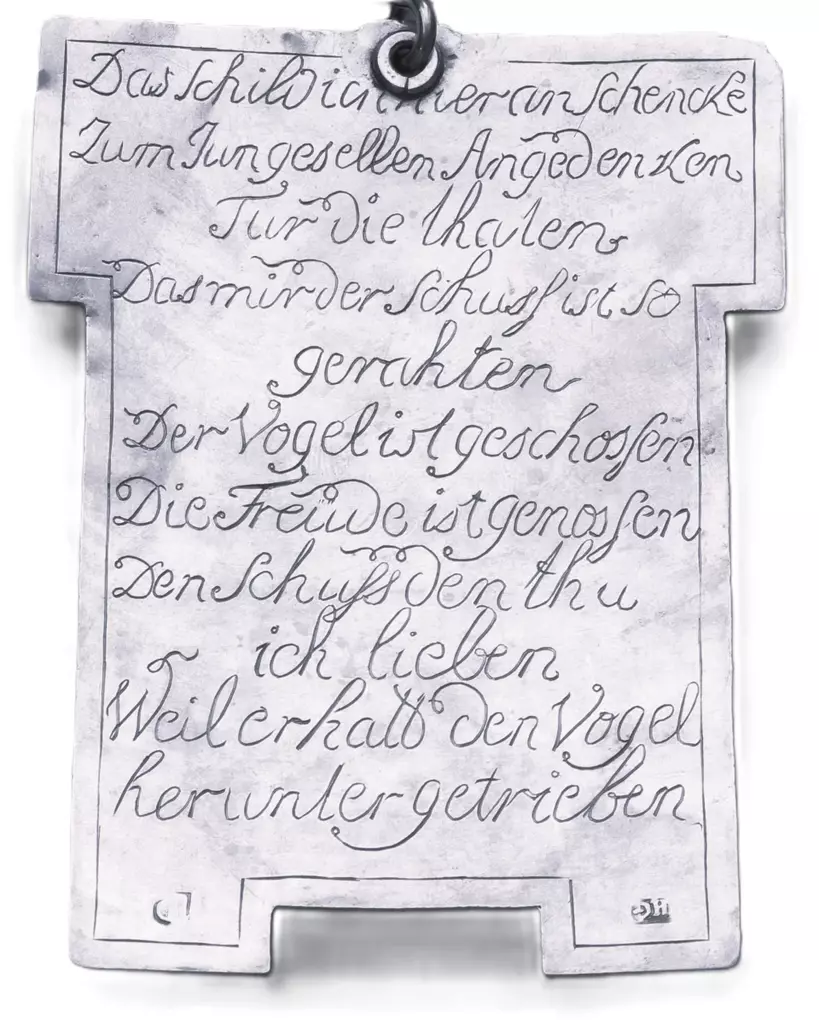 Das schild ich hier an schencke
Zum Jungesellen Angedencken
Fur die thaten
Das mir der schuss ist so
gerahten
Der Vogel ist geschossen
Die Freude ist genossen
Den schuss den thu
ich lieben
Weil er hatt den Vogel
herunter getrieben